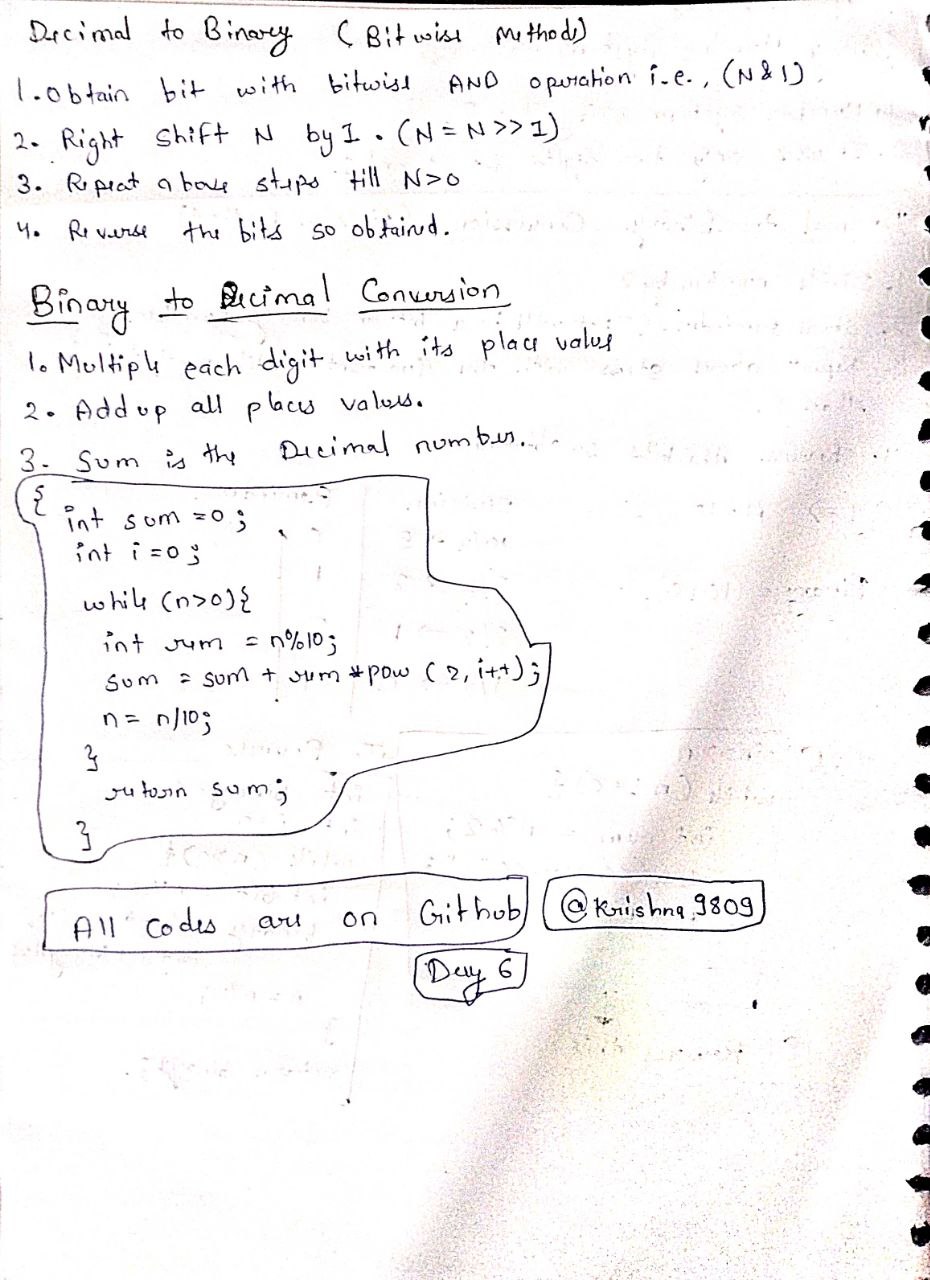 Decimal to Binary (Bitwise Methods)
1. Obtain bit with bitwise AND operation i.e., (N & 1)
2. Right Shift N by 1. (N = N >> 1)
3. Repeat above steps till N>0
4. Reverse the bits so obtained.
Binary to Decimal Conversion
1. Multiple each digit with its place value
2. Add up all places values.
3. Sum is the Decimal number.
{
int sum = 0;
int i = 0;
while (n>0){
int rem = n%10;
sum = sum + rem * pow (2, i++);
n = n/10;
}
return sum;
}
All codes are on Github @krishna_9809
Day 6